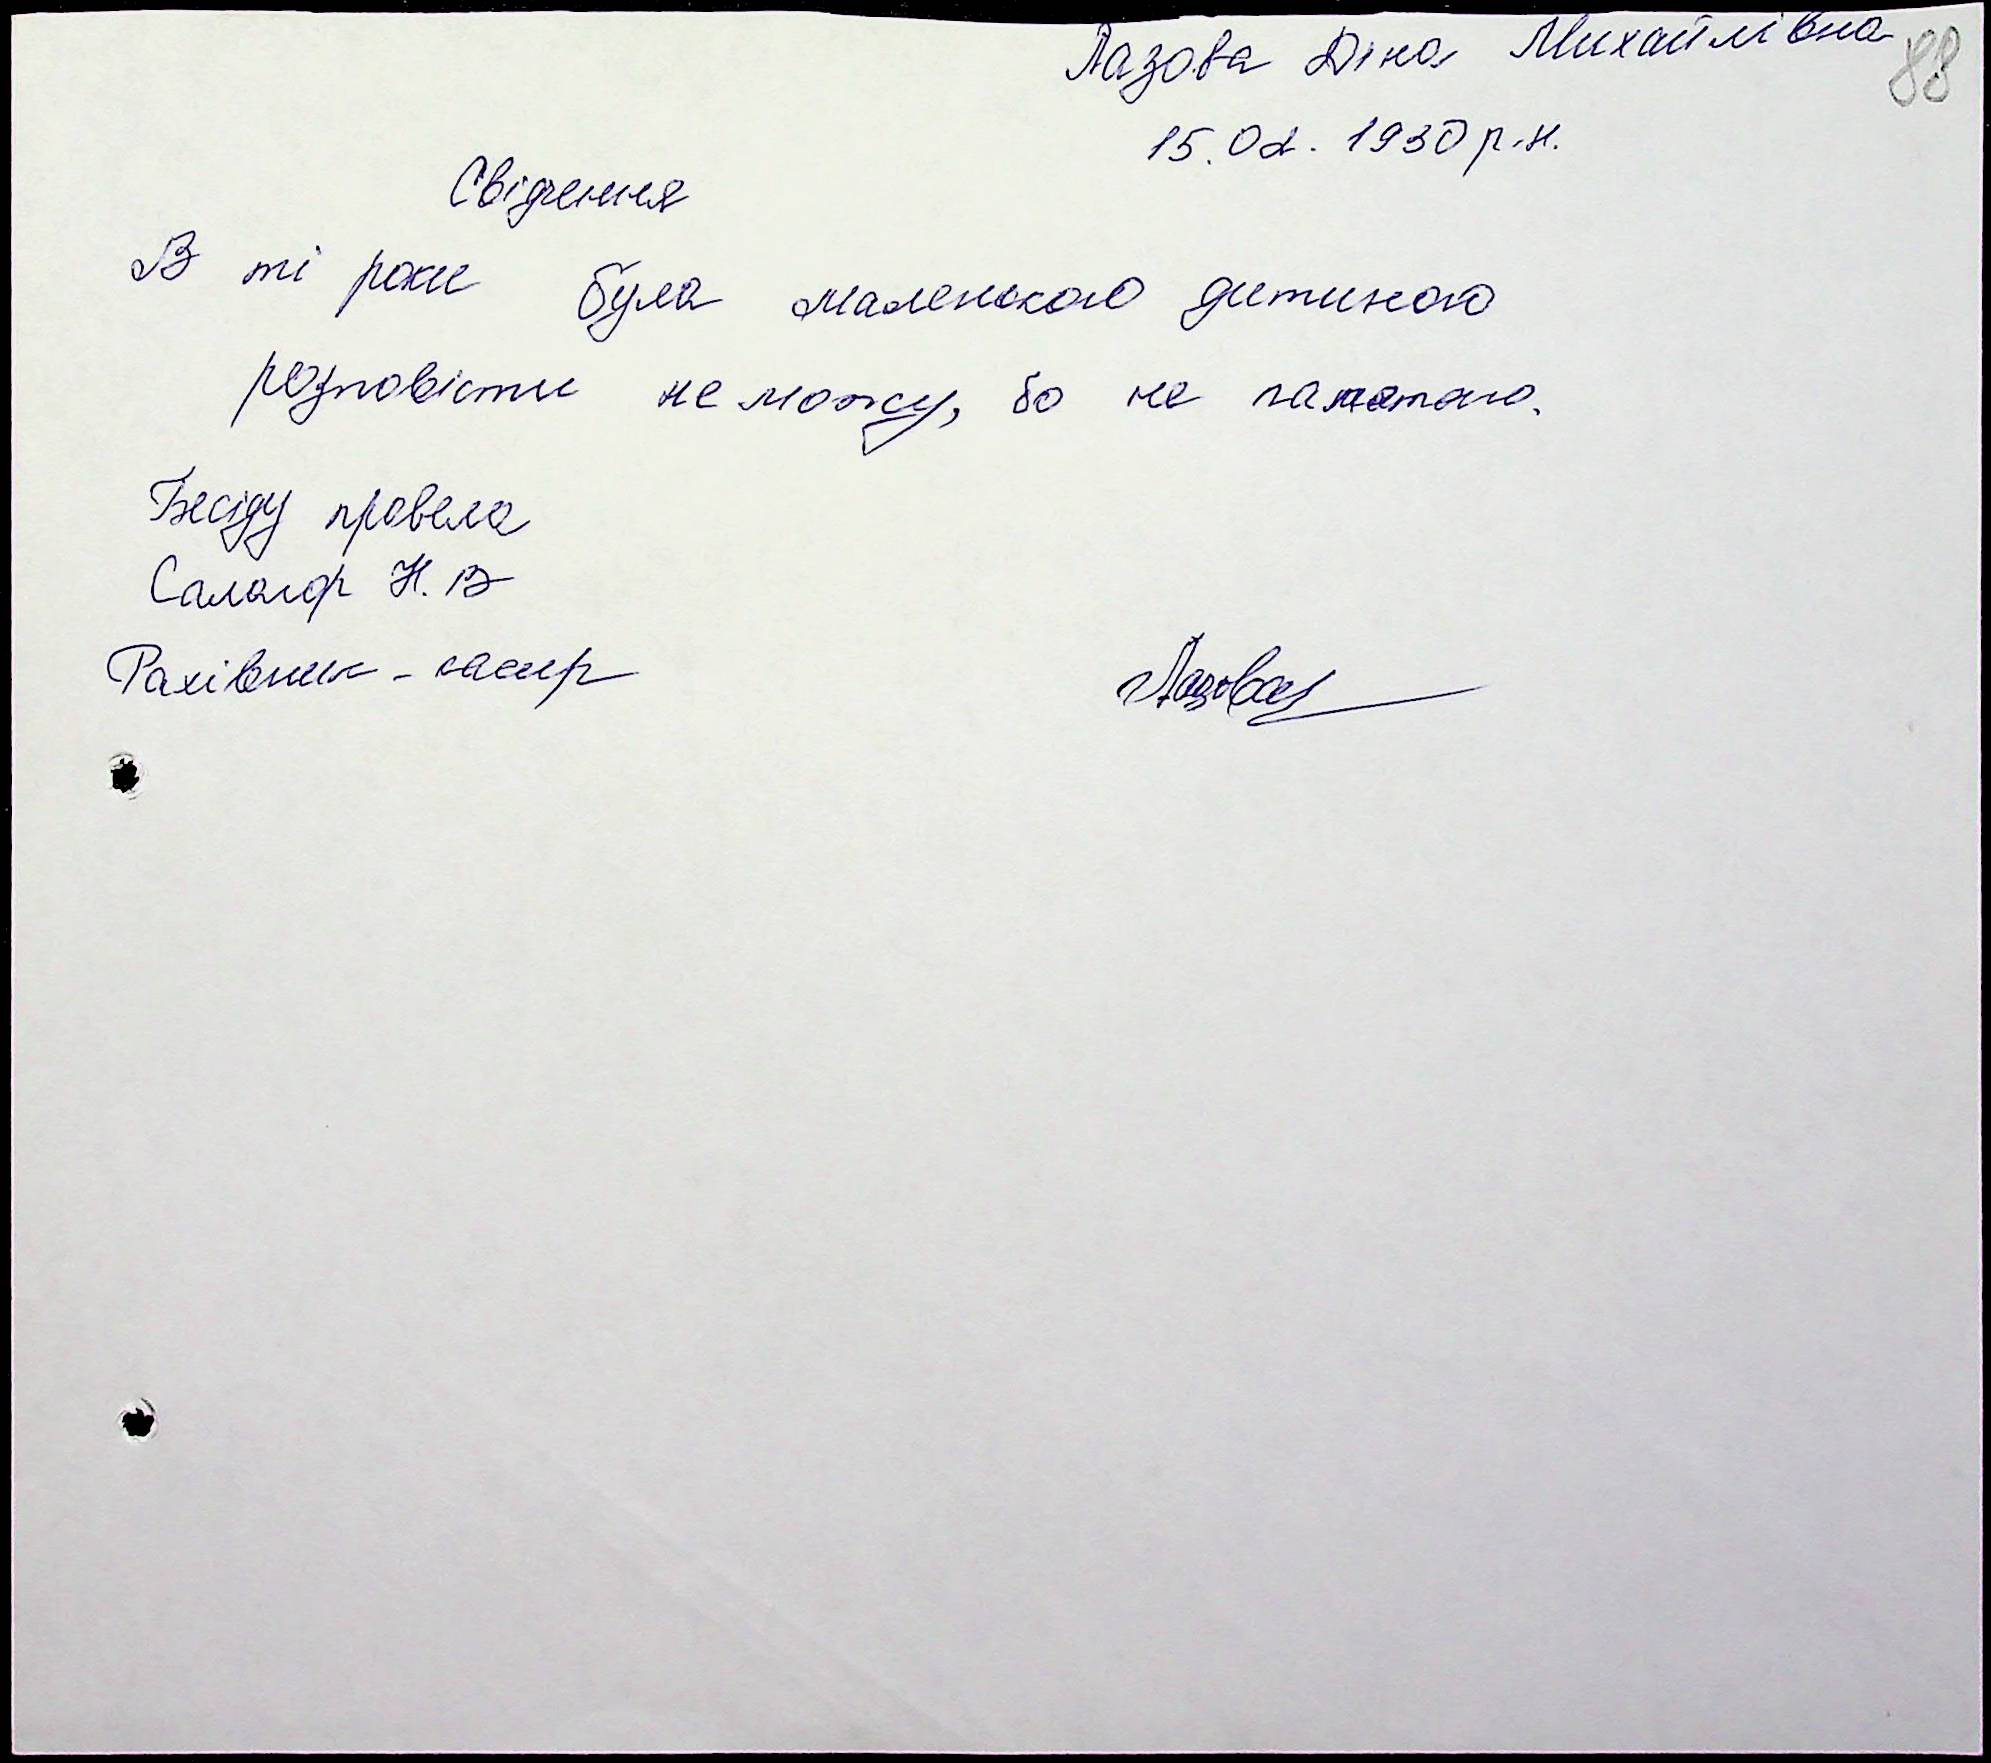 Лазова Діна Михайлівна 88
15.02.1930 р.н.
Свідчення
В ті роки була маленькою дитиною
розповісти не можу, бо не памятаю.
Бесіду провела
Салогор Н.В
Рахівник-касир Лазова